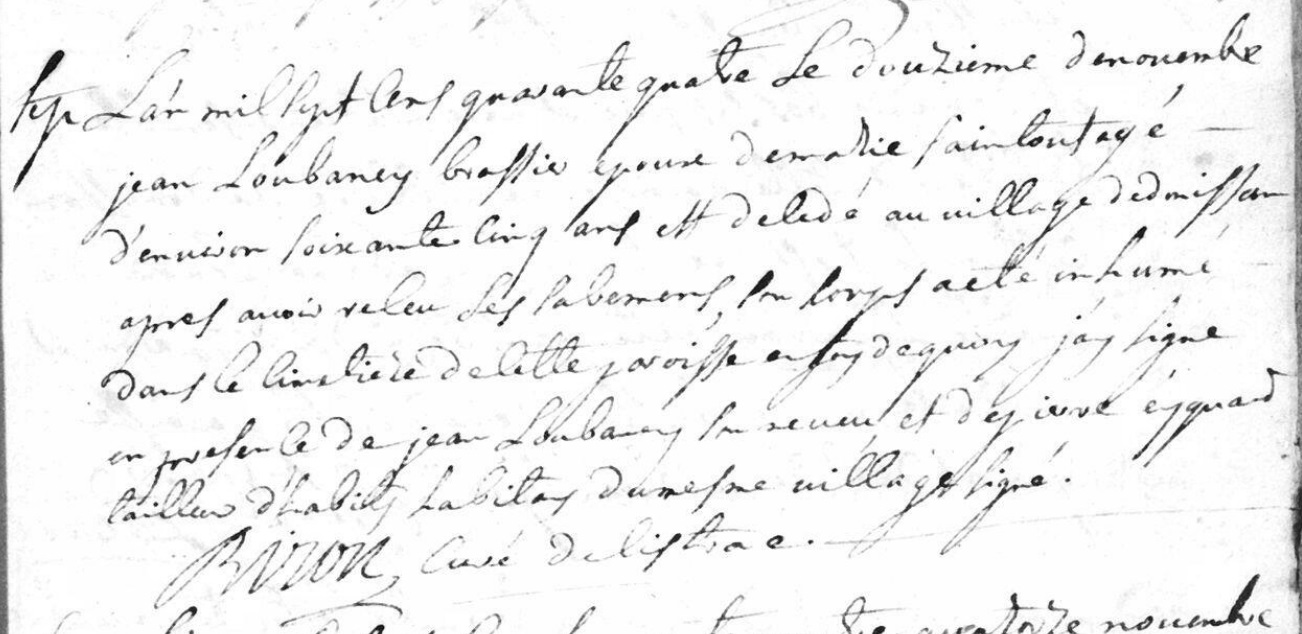 Sep L'an mil sept cens quarante quatre Le douzieme denouembre
jean Loubaney brassier epoux demarie saintout agé
d'enuiron soixante cinq ans est decedé au uillage de
apres auoir receu ses sacremens, son corps aeté inhumé
dans le cimetiere decette paroisse en foy dequoy jay signé
en presence de jean Loubaney son neueu et de pierre eyquard
tailleur d'habits habitans dumesme uillage signé.
Biron, Curé delistrac.
quatorze nouembre